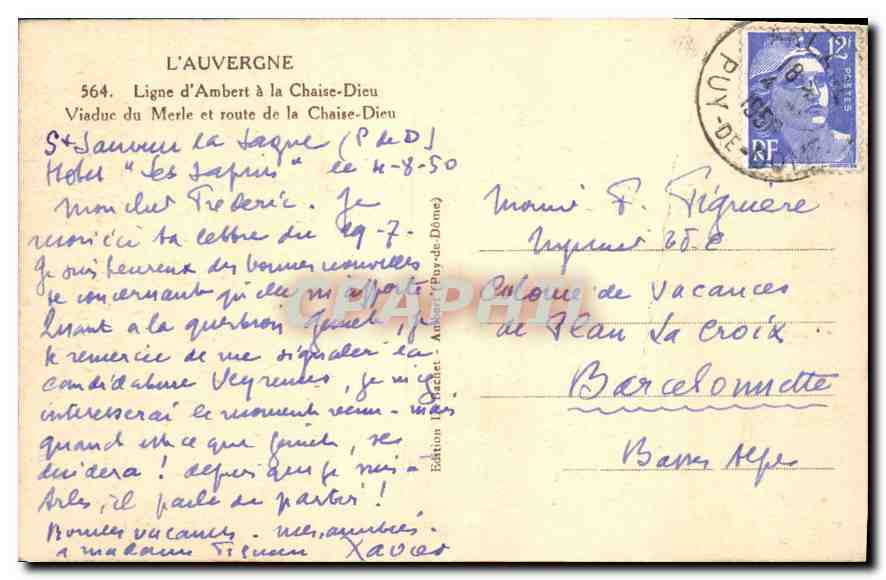 L'AUVERGNE
564. Ligne d'Ambert à la Chaise-Dieu
Viaduc du Merle et route de la Chaise-Dieu
St Sauveur la Sagne (P de D)
Hotel "Les Sapins" le 4-8-50
Mon cher Frédéric. Je
reçois ici ta lettre du 29-7.
Je suis heureux des bonnes nouvelles
te concernant qu'elle m'apporte.
Quant a la question je
te remercie de me signaler la
candidature Veyrenes, je m'y
interesserai le moment venu - mais
quand est-ce que se
decidera ! depuis que je suis a
Arles, il parle de partir !
Bonnes vacances - mes amitiés.
a madame Figuiere Xavier
Edition Bachet - Ambert (Puy-de-Dôme)
F. Figuiere
Colonie de Vacances
de Plan La Croix
Barcelonnette
Basses Alpes
12F
POSTES
RF
PUY-DE-
1950
CPAPHIL